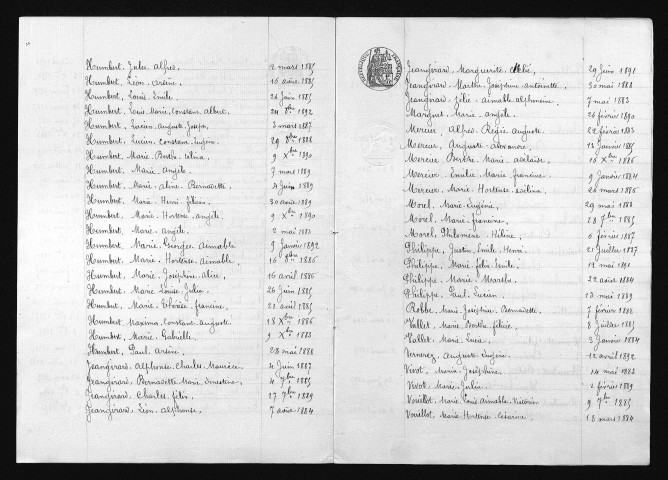 Humbert, Jules Alfred. 2 mars 1885
Humbert, Léon Arsène. 16 août 1885
Humbert, Louis Emile. 24 Juin 1885
Humbert, Louis Marie Constant Albert 24 8bre 1892
Humbert, Lucien Auguste Joseph, 3 mars 1887
Humbert, Lucien Constant Eugène. 29 8bre 1888
Humbert, Marie Berthe Celina, 9 Xbre 1890
Humbert, Marie Angèle. 7 mars 1889
Humbert, Marie Aline Bernadette. 4 Juin 1889
Humbert, Marie Henri Félicien 30 août 1889
Humbert, Marie Hortense Angèle. 9 Xbre 1890
Humbert, Marie Angèle. 2 mai 1883
Humbert, Marie Georges Aimable 9 Janvier 1892
Humbert, Marie Hortense Aimable, 16 8bre 1886
Humbert, Marie Joséphine Alice, 16 avril 1886
Humbert, Marie Louise Julie. 26 Juin 1885
Humbert, Marie Thérèse Francine, 21 avril 1885
Humbert, Maxime Constant Auguste. 18 Xbre 1886
Humbert, Marie Gabrielle. 9 Xbre 1883
Humbert, Paul Arsène. 28 mai 1888
Jeangirard, Alphonse Charles Maurice. 4 Juin 1887
Jeangirard, Bernadette Marie Ernestine. 4 7bre 1885
Jeangirard, Charles Félix, 27 7bre 1889
Jeangirard, Léon Alphonse, 7 août 1884
Jeangirard, Marguerite 29 Juin 1891
Jeangirard, Marthe Joséphine Antoinette. 30 mai 1888
Jeangirard, Zélie Aimable Alphonsine. 7 mai 1883
Marguet, Marie Angèle. 26 février 1890
Mercier, Alfred Régis Auguste. 22 février 1883
Mercier, Auguste Alexandre. 12 Janvier 1885
Mercier, Berthe Marie Adelaïde. 16 Xbre 1886
Mercier, Emilie Marie Francine. 9 Janvier 1884
Mercier, Marie Hortense Evelina. 20 mars 1886
Morel, Marie Eugénie. 29 mai 1888
Morel, Marie Francine. 18 7bre 1885
Morel, Philomène Hélène. 6 février 1887
Philippe, Justin Emile Henri. 21 Juillet 1887
Philippe, Marie Félix Emile. 12 mai 1891
Philippe, Marie Marthe. 22 août 1884
Philippe, Paul Lucien. 13 mai 1889
Robbe, Marie Joséphine Bernadette. 7 février 1882
Vallet, Marie Berthe Félicie. 8 Juillet 1885
Vallet, Marie Lucie. 3 Janvier 1884
Vernerey, Auguste Eugène. 12 avril 1892
Vivot, Marie Joséphine. 14 mai 1883
Vivot, Marie Julie. 2 février 1889
Vouillot, Marie Louis Aimable Victorin. 9 7bre 1885
Vouillot, Marie Hortense Césarine. 18 mars 1884